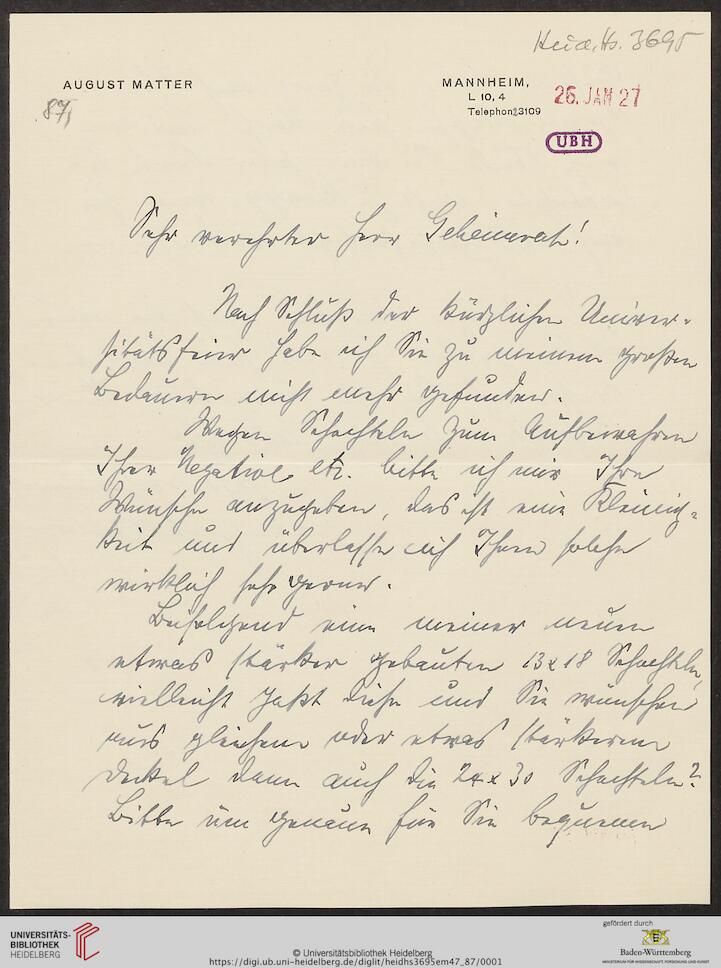 Heid. Hs. 3695
AUGUST MATTER
MANNHEIM,
L 10, 4
Telephon 23109
26. JAN 27
87,
UBH
Sehr verehrter Herr Geheimrat!
Nach Schluß der kürzlichen Univer-
sitätsfeier habe ich Sie zu meinem großen
Bedauern nicht mehr gefunden.
Wegen Schachteln zum Aufbewahren
Ihrer Negative etc. bitte ich mir Ihre
Wünsche anzugeben, das ist eine Kleinig-
keit und überlasse ich Ihnen solche
wirklich sehr gerne.
Beifolgend eine meiner neuen
etwas stärker gebauten 13x18 Schachteln,
vielleicht paßt diese und Sie wünschen
aus gleichem oder etwas stärkerem
Deckel dann auch die 24x30 Schachteln?
Bitte um genaue für Sie bequemen
UNIVERSITÄTS-
BIBLIOTHEK
HEIDELBERG
© Universitätsbibliothek Heidelberg
https://digi.ub.uni-heidelberg.de/diglit/heidhs3695em47_87/0001
gefördert durch
Baden-Württemberg
MINISTERIUM FÜR WISSENSCHAFT, FORSCHUNG UND KUNST